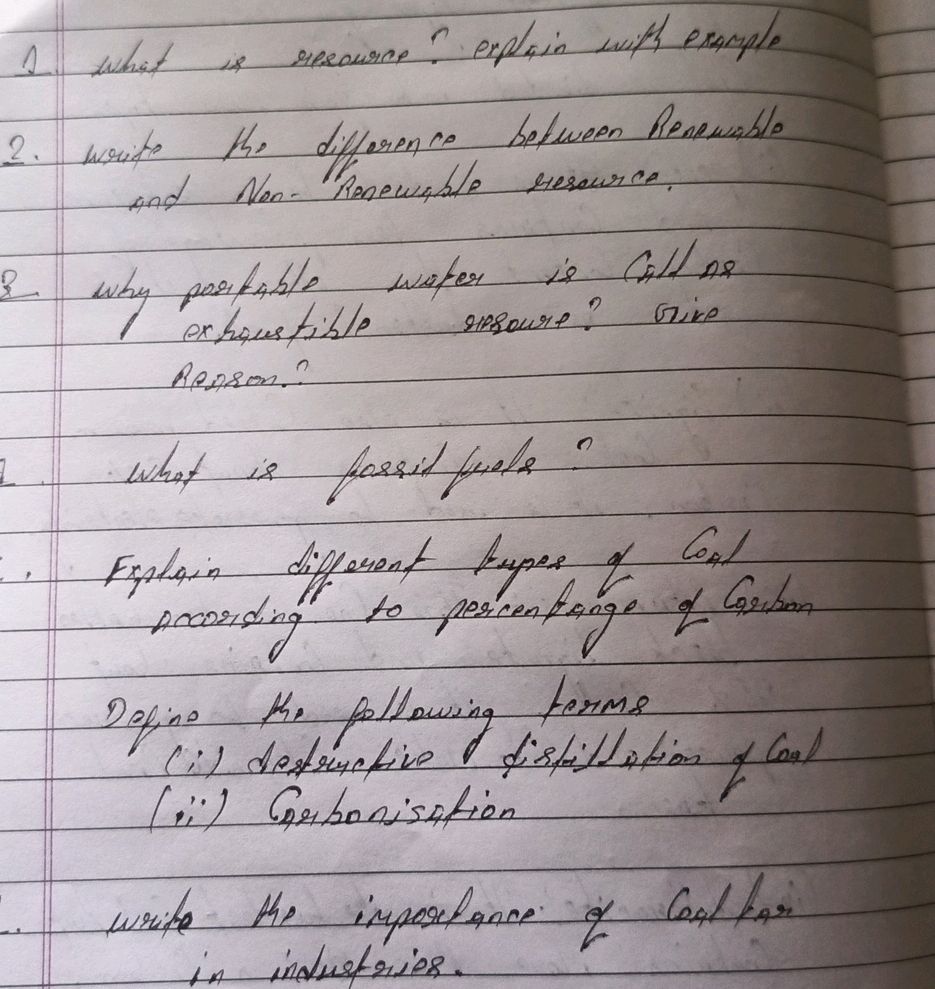 1 what is resource? explain with example
2. write the difference between Renewable
and Non-Renewable resource.
3 why portable water is Call as
exhaustible resoure? Give
Reason.?
what is fossil fuels?
Explain different types of Coal
according to percentange of Carbon
Define the following terms
(i) destructive distillation of Coal
(ii) Carbonisation
write the importance of Coal tar
in industries.